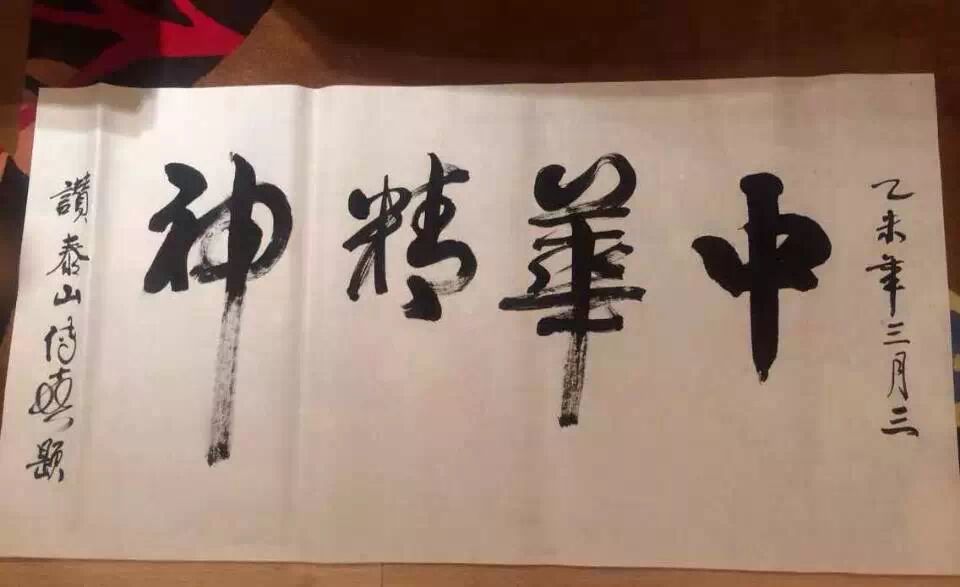 乙未年三月三
中華精神
讚泰山傅
題